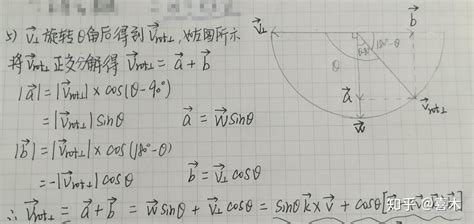 5) v⃗⊥ 旋转 θ角后得到 v⃗rot⊥, 如左图所示
将 v⃗rot⊥ 正交分解得 v⃗rot⊥ = a⃗ + b⃗
|a⃗| = |v⃗rot⊥| × cos(θ-90°)
= |v⃗rot⊥| sinθ  a⃗ = w⃗ sinθ
|b⃗| = |v⃗rot⊥| × cos(180°-θ)
= -|v⃗rot⊥| cosθ  b⃗ = v⃗⊥ cosθ
∴ v⃗rot⊥ = a⃗ + b⃗ = w⃗ sinθ + v⃗⊥ cosθ = sinθ k⃗ × v⃗ + cosθ[
v⃗⊥
b⃗
180°-θ
θ
a⃗
v⃗rot⊥
w⃗
知乎 @喜木